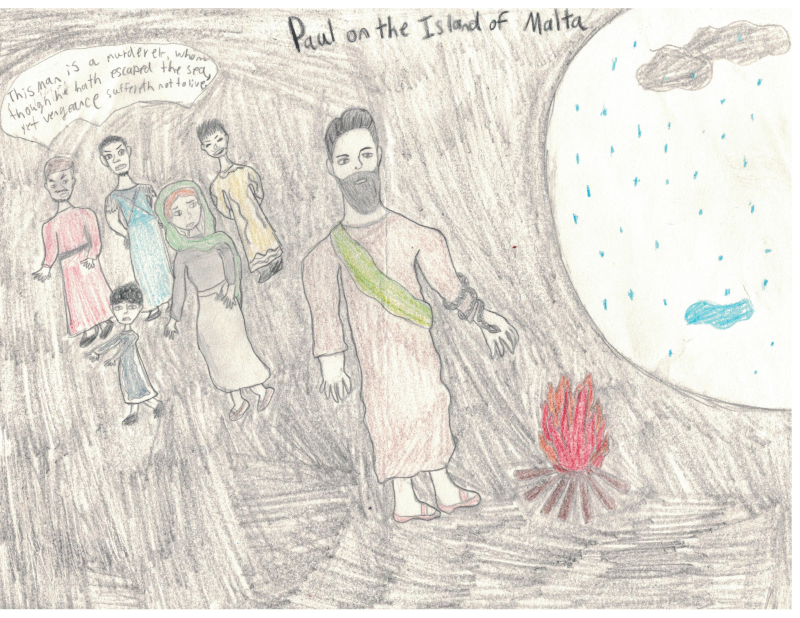 Paul on the Island of Malta
This man is a murderer, whom
though he hath escaped the sea,
yet vengeance suffereth not to live